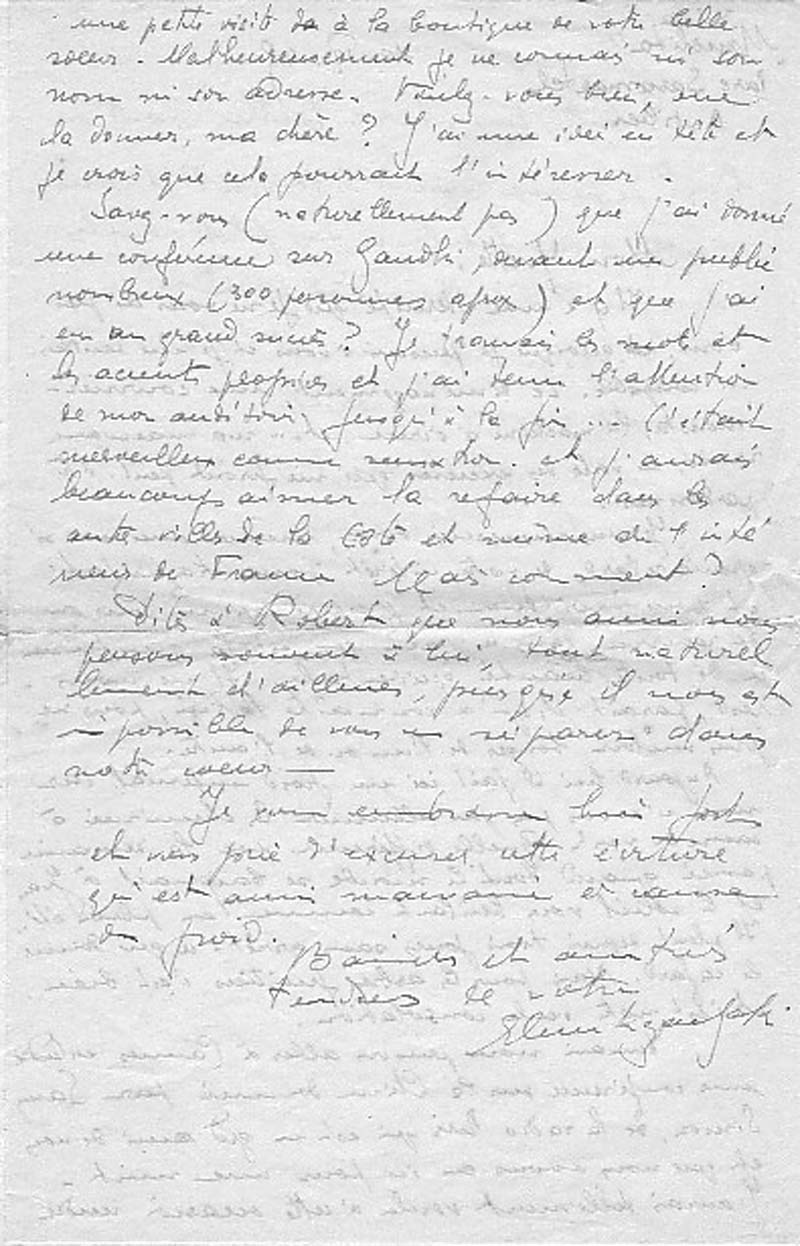 une petite visite à la boutique de votre belle
soeur. Malheureusement je ne connais ni son
nom ni son adresse. Voulez-vous bien, me
la donner, ma chère ? J'ai une idée en tête et
je crois que cela pourrait l'intéresser.
Savez-vous (naturellement pas) que j'ai donné
une conférence sur Gandhi devant un public
nombreux (300 personnes aprox) et que j'ai
eu un grand succès ? Je trouvais les mots et
les accents propres et j'ai tenu l'attention
de mon auditoire jusqu'à la fin... C'était
merveilleux comme et j'aurais
beaucoup aimer la refaire dans les
autre villes de la Côte et même de l'inté
rieur de France Mais comment ?
Dites à Robert que nous aussi nous
pensons souvent à lui, tout naturel
lement d'ailleurs, puisque il nous est
impossible de vous séparer dans
notre coeur —
Je vous embrasse bien fort
et vous prie d'excuser cette écriture
qui est aussi mauvaise et cause
du froid.
Baisers et amitiés
tendres de votre